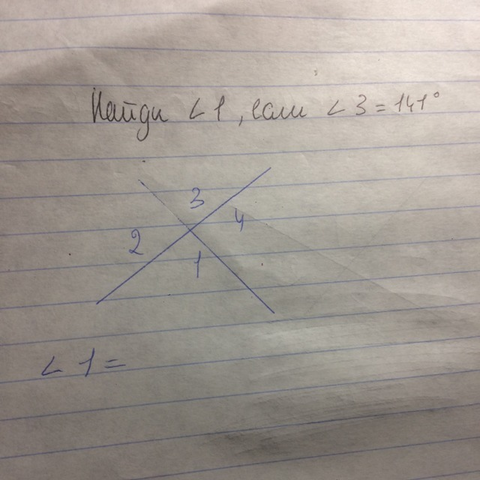 Найди ∠1, если ∠3=141°
3
2
4
1
∠1=